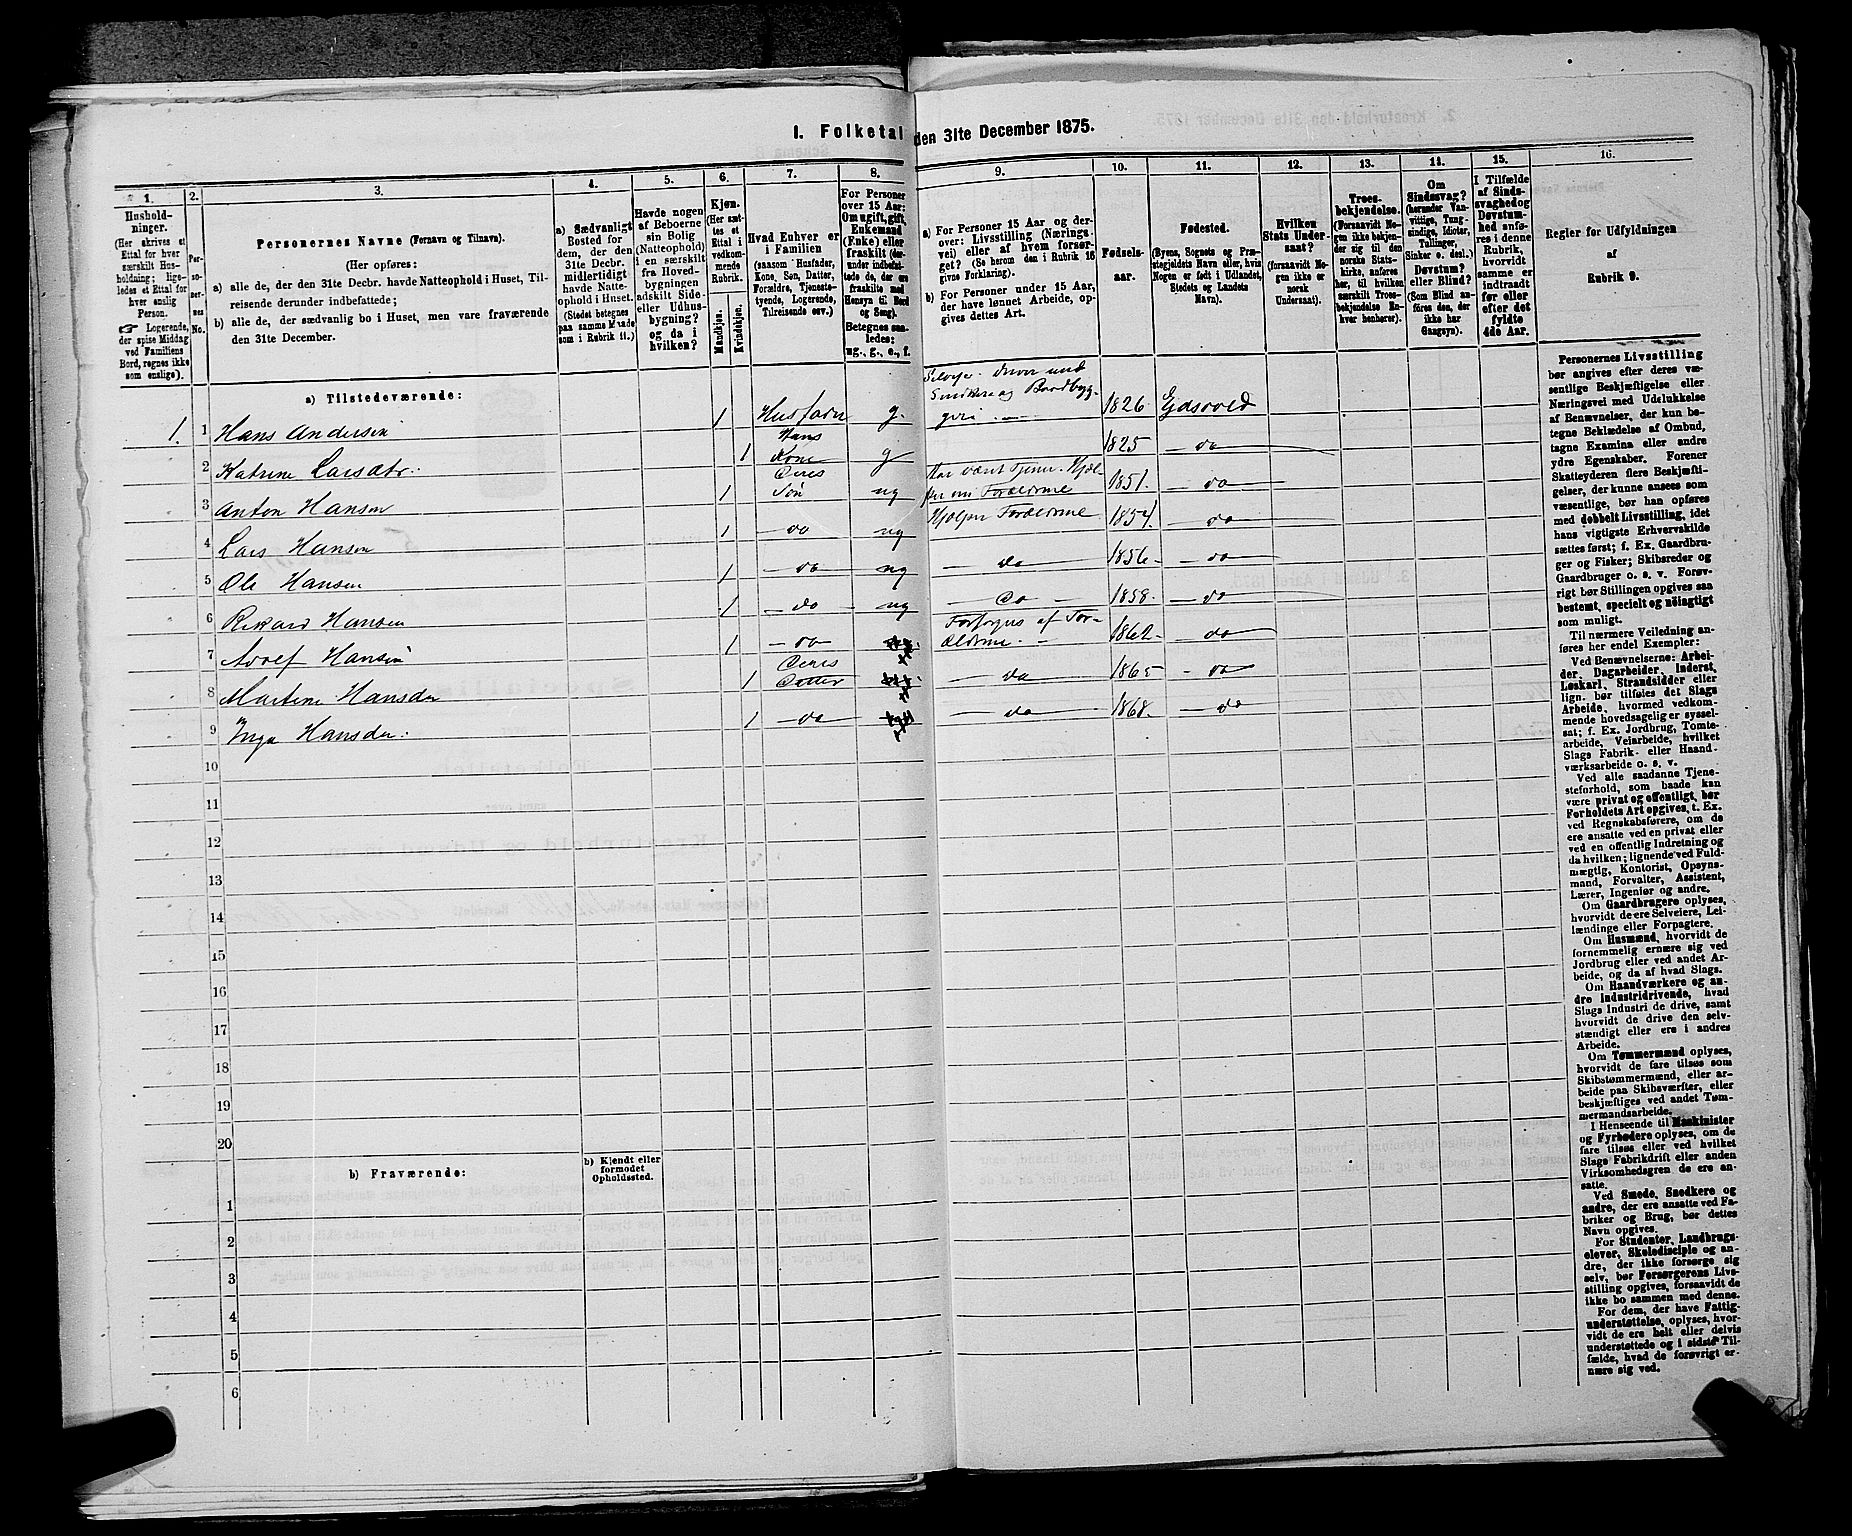 1. Folketal den 31te December 1875.
1.
Hushold-
ninger.
(Her skrives et
Ettal for hver
særskilt Hus-
holdning; lige-
ledes et Ettal for
hver enslig
Person.
☞ Logerende,
der spise Middag
ved Familiens
Bord, regnes ikke
som enslige).
2.
Per-
so-
ner-
nes
No.
3.
Personernes Navne (Fornavn og Tilnavn).
(Her opføres:
a) alle de, der den 31te Decbr. havde Natteophold i Huset, Til-
reisende derunder indbefattede;
b) alle de, der sædvanlig bo i Huset, men vare fraværende
den 31te December.
4.
a) Sædvanligt
Bosted for
dem, der den
31te Decbr.
midlertidigt
havde Natte-
ophold i Huset.
(Stedet betegnes
paa samme Maade
som i Rubrik 11.)
5.
Havde nogen
af Beboerne
sin Bolig
(Natteophold)
i en særskilt
fra Hoved-
bygningen
adskilt Side-
eller Udhus-
bygning?
og da i
hvilken?
6.
Kjøn.
(Her sæt-
tes et
Ettal i
vedkom-
mende
Rubrik.
Mandkjøn.
Kvindekjøn.
7.
Hvad Enhver er
i Familien
(saasom Husfader,
Kone, Søn, Datter,
Forældre, Tjeneste-
tyende, Logerende,
Tilreisende osv.)
8.
For Personer
over 15 Aar:
Om ugift, gift,
Enkemand
(Enke) eller
fraskilt (der-
under indbefat-
tede de, der ere
fraskilte med
Hensyn til Bord
og Seng).
Betegnes saa-
ledes:
ug., g., e., f.
9.
a) For Personer 15 Aar og der-
over: Livsstilling (Nærings-
vei) eller af hvem forsør-
get? (Se herom den i Rubrik 16
givne Forklaring).
b) For Personer under 15 Aar,
der have lønnet Arbeide, op-
gives dettes Art.
10.
Fødsels-
aar.
11.
Fødested.
(Byens, Sognets og Præ-
stegjeldets Navn eller, hvis
Nogen er født i Udlandet,
Stedets og Landets
Navn).
12.
Hvilken
Stats Under-
saat?
(forsaavidt No-
gen ikke er
norsk
Undersaat).
13.
Troes-
bekjendelse.
(Forsaavidt No-
gen ikke bekjen-
der sig til den
norske Stats-
kirke, anføres
her, til hvilken
særskilt Troes-
bekjendelse En-
hver henhører).
14.
Om
Sindssvag?
(herunder Van-
vittige, Tung-
sindige, Idioter,
Tullinger,
Sinker o. desl.)
Døvstum?
eller Blind?
(Som Blind an-
føres den, der
ikke har
Gangsyn).
15.
I Tilfælde
af Sinds-
svaghed og
Døvstum-
hed anfø-
res i denne
Rubrik,
hvorvidt
samme er
indtraadt
før eller
efter det
fyldte
4de Aar.
16.
Regler for Udfyldningen
af
Rubrik 9.
a) Tilstedeværende:
1. 1 Hans Andersen 1 Husfader g. Selveier driver med Snedkeri og Baadbyg- geri 1826 Eidsvold
2 Katrine Larsdtr. 1 Hans Kone g 1825 do
3 Anton Hansen 1 Deres Søn ug Har været Tjener. Hjæl- per nu Forældrene 1851 do
4 Lars Hansen 1 do ug Hjelper Forældrene 1854 do
5 Ole Hansen 1 do ug do 1856 do
6 Rikard Hansen 1 do ug do 1858 do
7 Adolf Hansen 1 do Forsørges af For- ældrene 1862 do
8 Martine Hansdr 1 Deres Datter do 1865 do
9 Inga Hansdr. 1 do do 1868 do
10
11
12
13
14
15
16
17
18
19
20
b) Fraværende:
b) Kjendt eller
formodet
Opholdssted.
1
2
3
4
5
6
Personernes Livsstilling
bør angives efter deres væ-
sentlige Beskjæftigelse eller
Næringsvei med Udelukkelse
af Benævnelser, der kun be-
tegne Beklædelse af Ombud,
tagne Examina eller andre
ydre Egenskaber. Forener
Skatteyderen flere Beskjæfti-
gelser, der kunne ansees som
væsentlige, bør han opføres
med dobbelt Livsstilling, idet
hans vigtigste Erhvervskilde
sættes først; f. Ex. Gaardbru-
ger og Fisker; Skibsreder og
Gaardbruger o. s. v. Forøv-
rigt bør Stillingen opgives saa
bestemt, specielt og nöiagtigt
som muligt.
Til nærmere Veiledning an-
føres her endel Exempler:
Ved Benævnelserne: Arbei-
der, Dagarbeider, Inderst,
Løskarl, Strandsidder eller
lign. bør tilføies det Slags
Arbeide, hvormed vedkom-
mende hovedsagelig er syssel-
sat; f. Ex. Jordbrug, Tomte-
arbeide, Veiarbeide, hvilket
Slags Fabrik- eller Haand-
værksarbeide o. s. v.
Ved alle saadanne Tjene-
steforhold, som baade kan
være privat og offentligt, bør
Forholdets Art opgives, t. Ex.
ved Regnskabsførere, om de
ere ansatte ved en privat eller
ved en offentlig Indretning og
da hvilken; lignende ved Fuld-
mægtig, Kontorist, Opsyns-
mand, Forvalter, Assistent,
Lærer, Ingeniør og andre.
Om Gaardbrugere oplyses,
hvorvidt de ere Selveiere, Lei-
lændinge eller Forpagtere.
Om Husmænd, hvorvidt de
fornemmelig ernære sig ved
Jordbrug eller ved andet Ar-
beide, og da af hvad Slags.
Om Haandværkere og an-
dre Industridrivende, hvad
Slags Industri de drive, samt
hvorvidt de drive den selv-
stændigt eller ere i andres
Arbeide.
Om Tømmermænd oplyses,
hvorvidt de fare tilsøs som
Skibstømmermænd, eller ar-
beide paa Skibsværfter, eller
beskjæftiges ved andet Tøm-
mermandsarbeide.
I Henseende til Maskinister
og Fyrbødere oplyses, om de
fare tilsøs eller ved hvilket
Slags Fabrikdrift eller anden
Virksomhedsgren de ere an-
satte.
Ved Smede, Snedkere og
andre, der ere ansatte ved Fa-
briker og Brug, bør dettes
Navn opgives.
For Studenter, Landbrugs-
elever, Skoledisciple og an-
dre, der ikke forsørge sig
selv, bør Forsørgerens Livs-
stilling opgives, forsaavidt de
ikke bo sammen med denne.
For dem, der have Fattig-
understøttelse, oplyses, hvor-
vidt de ere helt eller delvis
understøttede og i sidste Til-
fælde, hvad de forøvrigt er-
nære sig ved.